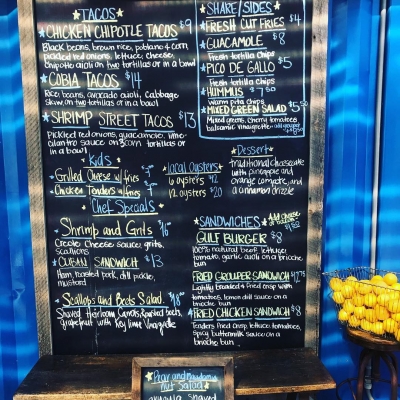 TACOS
CHICKEN CHIPOTLE TACOS $9
Black beans, brown rice, poblano & corn,
pickled red onions, lettuce, cheese,
chipotle aioli on two tortillas or in a bowl
COBIA TACOS $14
Rice, beans, avocado aioli, cabbage
slaw, on two tortillas or in a bowl
SHRIMP STREET TACOS $13
Pickled red onions, guacamole, lime-
cilantro sauce on 3 corn tortillas or
in a bowl
SHARE/SIDES
FRESH CUT FRIES $4
GUACAMOLE $8
Fresh tortilla chips
PICO DE GALLO $5
Fresh tortilla chips
HUMMUS $7.50
Warm pita chips
MIXED GREEN SALAD $5.50
Mixed greens, cherry tomatoes
balsamic vinaigrette
Kids
Grilled Cheese w/ fries
Chicken Tenders w/ fries
local Oysters
6 oysters $12
12 oysters $20
Dessert
traditional cheesecake
with pineapple and
orange compote, and
a cinnamon drizzle
Chef Specials
Shrimp and Grits $16
Creole cheese sauce, grits,
scallions
CUBAN SANDWICH $13
Ham, roasted pork, dill pickle,
mustard
Scallops and Beets Salad $18
Shaved Heirloom Carrots, Roasted beets,
grapefruit with Key lime Vinaigrette
SANDWICHES
Add cheese
GULF BURGER $8
100% natural beef, lettuce,
tomato, garlic aioli on a brioche
bun
FRIED GROUPER SANDWICH $12.75
Lightly breaded & fried crisp with
tomatoes, lemon dill sauce on a
brioche bun
FRIED CHICKEN SANDWICH $8
Tenders fried crisp, lettuce, tomatoes,
spicy buttermilk sauce on a
brioche bun
Pear and
nut Salad
shaved